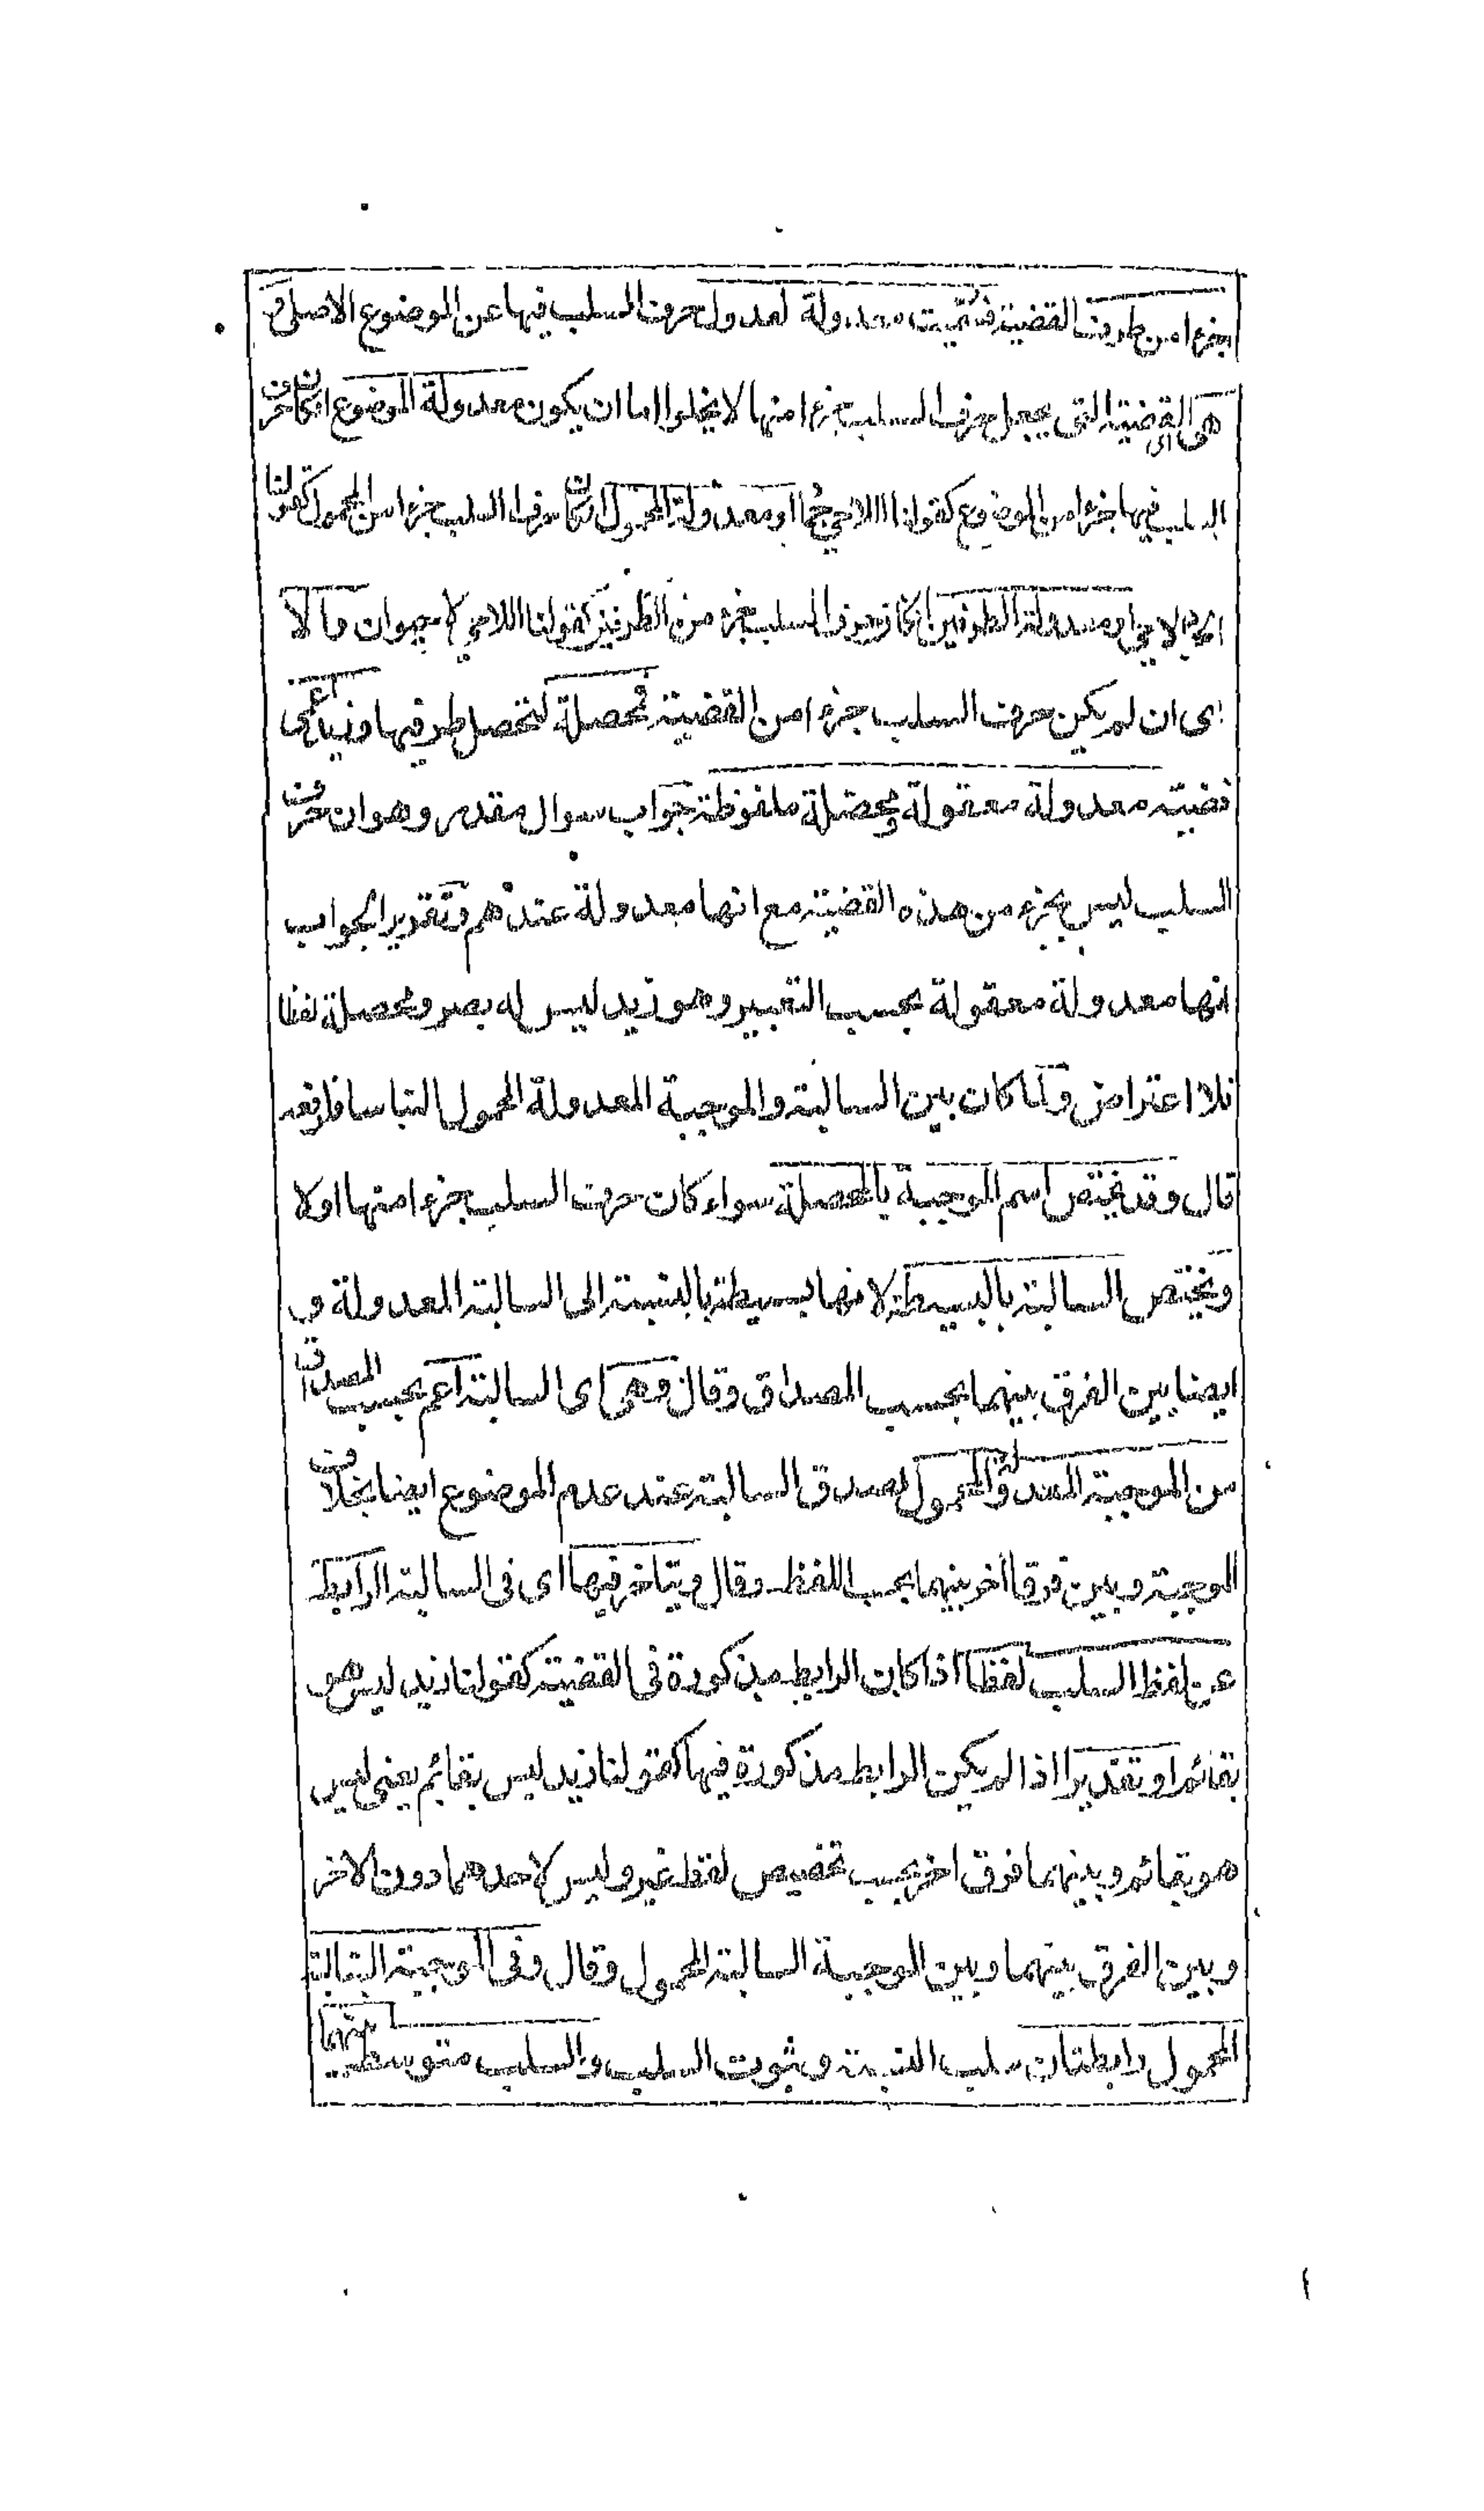 جزءا من طرف القضية فسميت معدولة لعدول حرف السلب فيها عن الموضوع الاصلي و
هي اي القضية التي يجعل حرف السلب جزءا منها لا يخلوا اما ان يكون معدولة الموضوع ان كان حرف
السلب فيها جزءا من الموضوع كقولنا اللاحي جماد او معدولة المحمول ان كان حرف السلب جزءا من المحمول كقولنا
الجماد لا حي او معدولة الطرفين ان كان حرف السلب جزء من الطرفين كقولنا اللاحي لا حيوان والا
اى ان لم يكن حرف السلب جزءا من القضية فمحصلة لتحصل طرفيها وزيد اعمى
قضية معدولة معقولة ومحصلة ملفوظة جواب سوال مقدر وهو ان حرف
السلب ليس بجزء من هذه القضية مع انها معدولة عندهم وتقدير الجواب
انها معدولة معقولة بحسب التعبير وهو زيد ليس له بصر ومحصلة لفظا
فلا اعتراض ولما كان بين السالبة والموجبة المعدولة المحمول التباسا فلرفعه
قال وقد يختص اسم الموجبة بالمحصلة سواء كان حرف السلب جزءا منها اولا
ويختص السالبة بالبسيطة لانها بسيطة بالنسبة الى السالبة المعدولة و
ايضا بين الفرق بينهما بحسب المصداق وقال وهي اى السالبة اعم بحسب المصداق
من الموجبة المعدولة المحمول لصدق السالبة عند عدم الموضوع ايضا بخلاف
الموجبة وبين فرقا اخر بينهما بحسب اللفظ وقال ويتاخر فيها اى فى السالبة الرابطة
عن لفظ السلب لفظا اذا كان الرابط مذكورة فى القضية كقولنا زيد ليس هو
بقائم او تقديرا اذا لم يكن الرابط مذكورة فيها كقولنا زيد ليس بقائم يعنى ليس
هو بقائم وبينهما فرق اخر بحسب تخصيص لفظ غير وليس لاحدهما دون الاخر
وبين الفرق بينهما وبين الموجبة السالبة المحمول وقال وفى الموجبة السالبة
المحمول رابطتان سلب النسبة وثبوت السلب والسلب متوسط بينهما